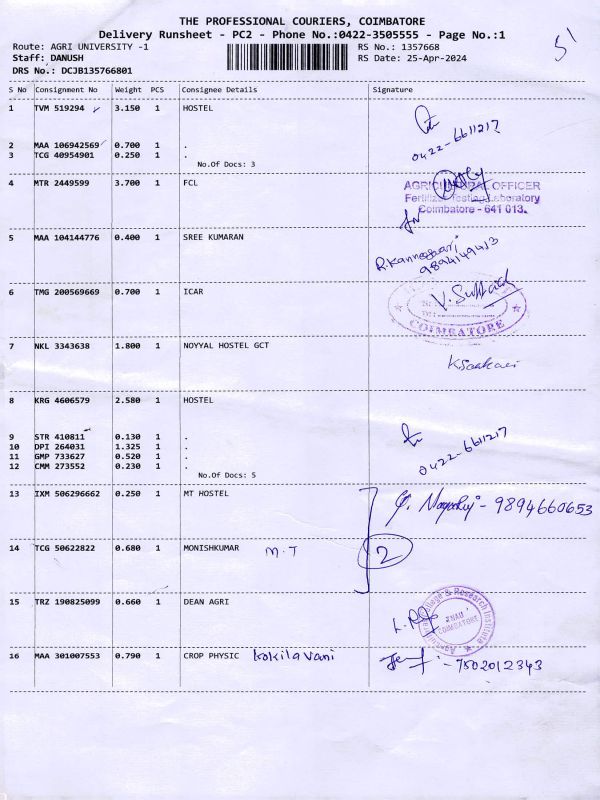 THE PROFESSIONAL COURIERS, COIMBATORE
Delivery Runsheet - PC2 - Phone No.:0422-3505555 - Page No.:1
Route: AGRI UNIVERSITY -1
RS No.: 1357668
Staff: DANUSH
RS Date: 25-Apr-2024
DRS No.: DCJB135766801
S No Consignment No Weight PCS Consignee Details Signature
1 TVM 519294 3.150 1 HOSTEL
0422-6611217
2 MAA 106942569 0.700 1 .
3 TCG 40954901 0.250 1 .
No.Of Docs: 3
4 MTR 2449599 3.700 1 FCL
AGRICULTURAL OFFICER
Fertilizer Testing Laboratory
Coimbatore - 641 013.
5 MAA 104144776 0.400 1 SREE KUMARAN
9894149413
6 TMG 200569669 0.700 1 ICAR
COIMBATORE
7 NKL 3343638 1.800 1 NOYYAL HOSTEL GCT
8 KRG 4606579 2.580 1 HOSTEL
9 STR 410811 0.130 1 .
10 DPI 264031 1.325 1 .
11 GMP 733627 0.520 1 .
12 CMM 273552 0.230 1 .
0422-6611217
No.Of Docs: 5
13 IXM 506296662 0.250 1 MT HOSTEL
- 9894660653
14 TCG 50622822 0.680 1 MONISHKUMAR M.T 2
15 TRZ 190825099 0.660 1 DEAN AGRI
College & Research Institute
TNAU
COIMBATORE
16 MAA 301007553 0.790 1 CROP PHYSIC kokilavani
- 7502012343